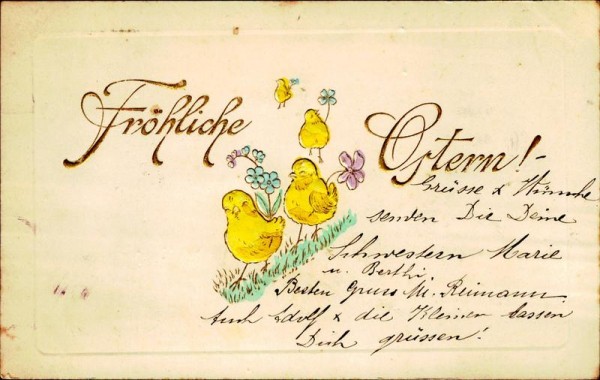 Fröhliche Ostern!-
Grüsse & Wünsche
senden Dir Deine
Schwestern Marie
u. Berthi.
Besten Gruss M. Reimann.
Auch Adolf & die Kleinen lassen
Dich grüssen!